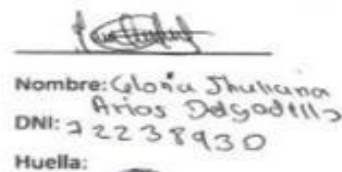 Nombre: Gloria Jhuliana
Arias Delgadillo
DNI: 72238930
Huella: